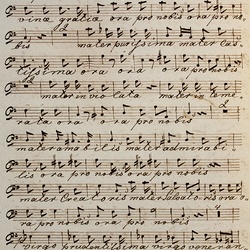 vinae gratiae ora pro nobis ora pro no
bis mater purissima mater Cas
tissima ora ora ora pro nobis
mater in violata mater in teme
rata ora ora pro nobis
mater amabilis mater admirabi
lis ora pro nobis ora pro nobis
mater Creatoris mater Salvatoris ora o
ra pro nobis ora pro nobis
virgo prudentissima virgo veneran